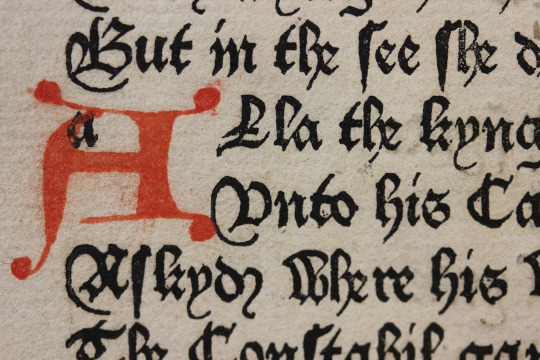 But in the ſee ſhe
A a Lla the kyng
Vnto his Ca
Aſkyd Where his
The Conſtabil gan